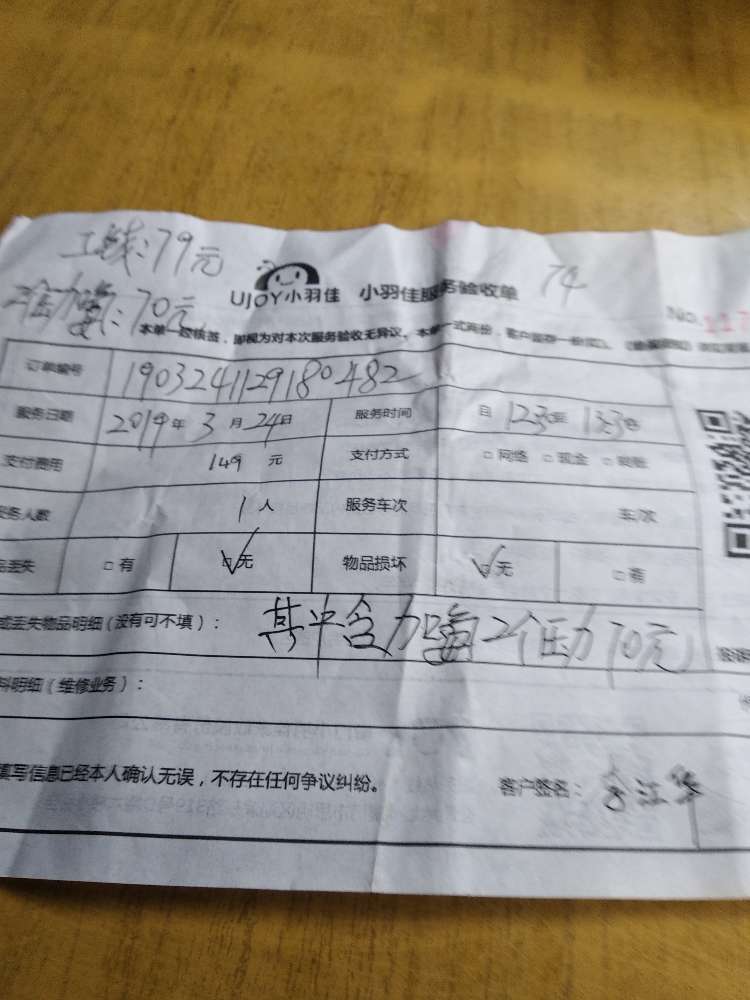 工钱:79元
2压力加氟:70元
UJOY小羽佳 小羽佳服务验收单 74
No.117
本单一经核签，即视为对本次服务验收无异议。本单一式两份，客户留存一份
订单编号 1903241129180482
服务日期 2019年3月24日 服务时间 自12:30至13:30
支付费用 149元 支付方式 □网络 □现金 □转账
务人数 1人 服务车次 车次
品丢失 □有 ☑无 物品损坏 ☑无 □有
或丢失物品明细（没有可不填）： 其中含加氟2个压力70元
料明细（维修业务）：
填写信息已经本人确认无误，不存在任何争议纠纷。 客户签名：